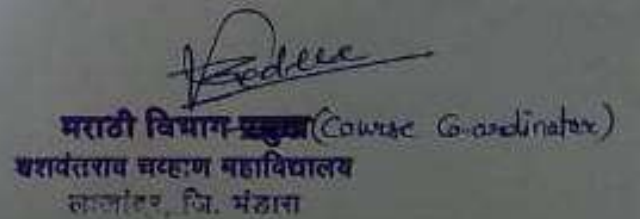 मराठी विभाग प्रमुख (Course Co-ordinator)
यशवंतराव चव्हाण महाविद्यालय
जि. भंडारा